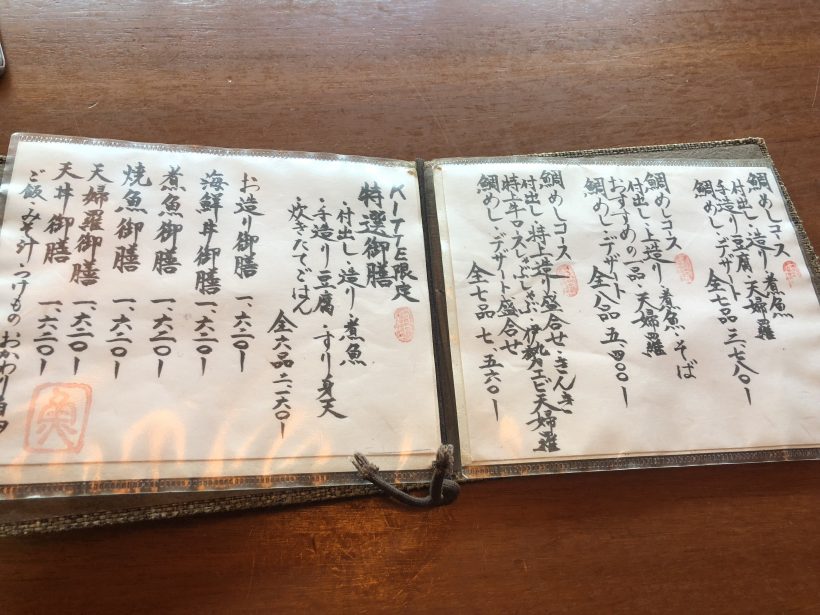 鯛めしコース
付出し・造り・煮魚
手造り豆腐・天婦羅
鯛めし・デザート
全七品 三、七八〇ー
鯛めしコース
付出し・上造り・煮魚・そば
おすすめの一品・天婦羅
鯛めし・デザート
全八品 五、四〇〇ー
鯛めしコース
付出し・特上造り盛合せ・きんき
特上牛ロースしゃぶしゃぶ・伊勢エビ天婦羅
鯛めし・デザート盛合せ
全七品 七、五六〇ー
KITTE限定
特選御膳
・付出し・造り・煮魚
・手造り豆腐・すり身天
・炊きたてごはん
全六品 二、一六〇ー
お造り御膳 一、六二〇ー
海鮮丼御膳 一、六二〇ー
煮魚御膳 一、六二〇ー
焼魚御膳 一、六二〇ー
天婦羅御膳 一、六二〇ー
天丼御膳 一、六二〇ー
ご飯・みそ汁・つけもの おかわり自由
魚